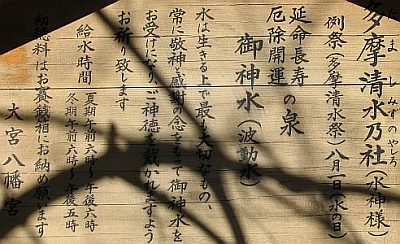 多摩清水乃社（水神様）
たましみずのやしろ
例祭（多摩清水祭）八月一日（水の日）
延命長寿
厄除開運
の泉
御神水（波動水）
水は生きる上で最も大切なもの、
常に敬神・感謝の念をもつて御神水を
お受けになり、ご神徳を戴かれますよう
お祈り致します
給水時間
夏期 午前六時〜午後六時
冬期 午前六時〜午後五時
初穂料はお賽銭箱にお納め願います
大宮八幡宮